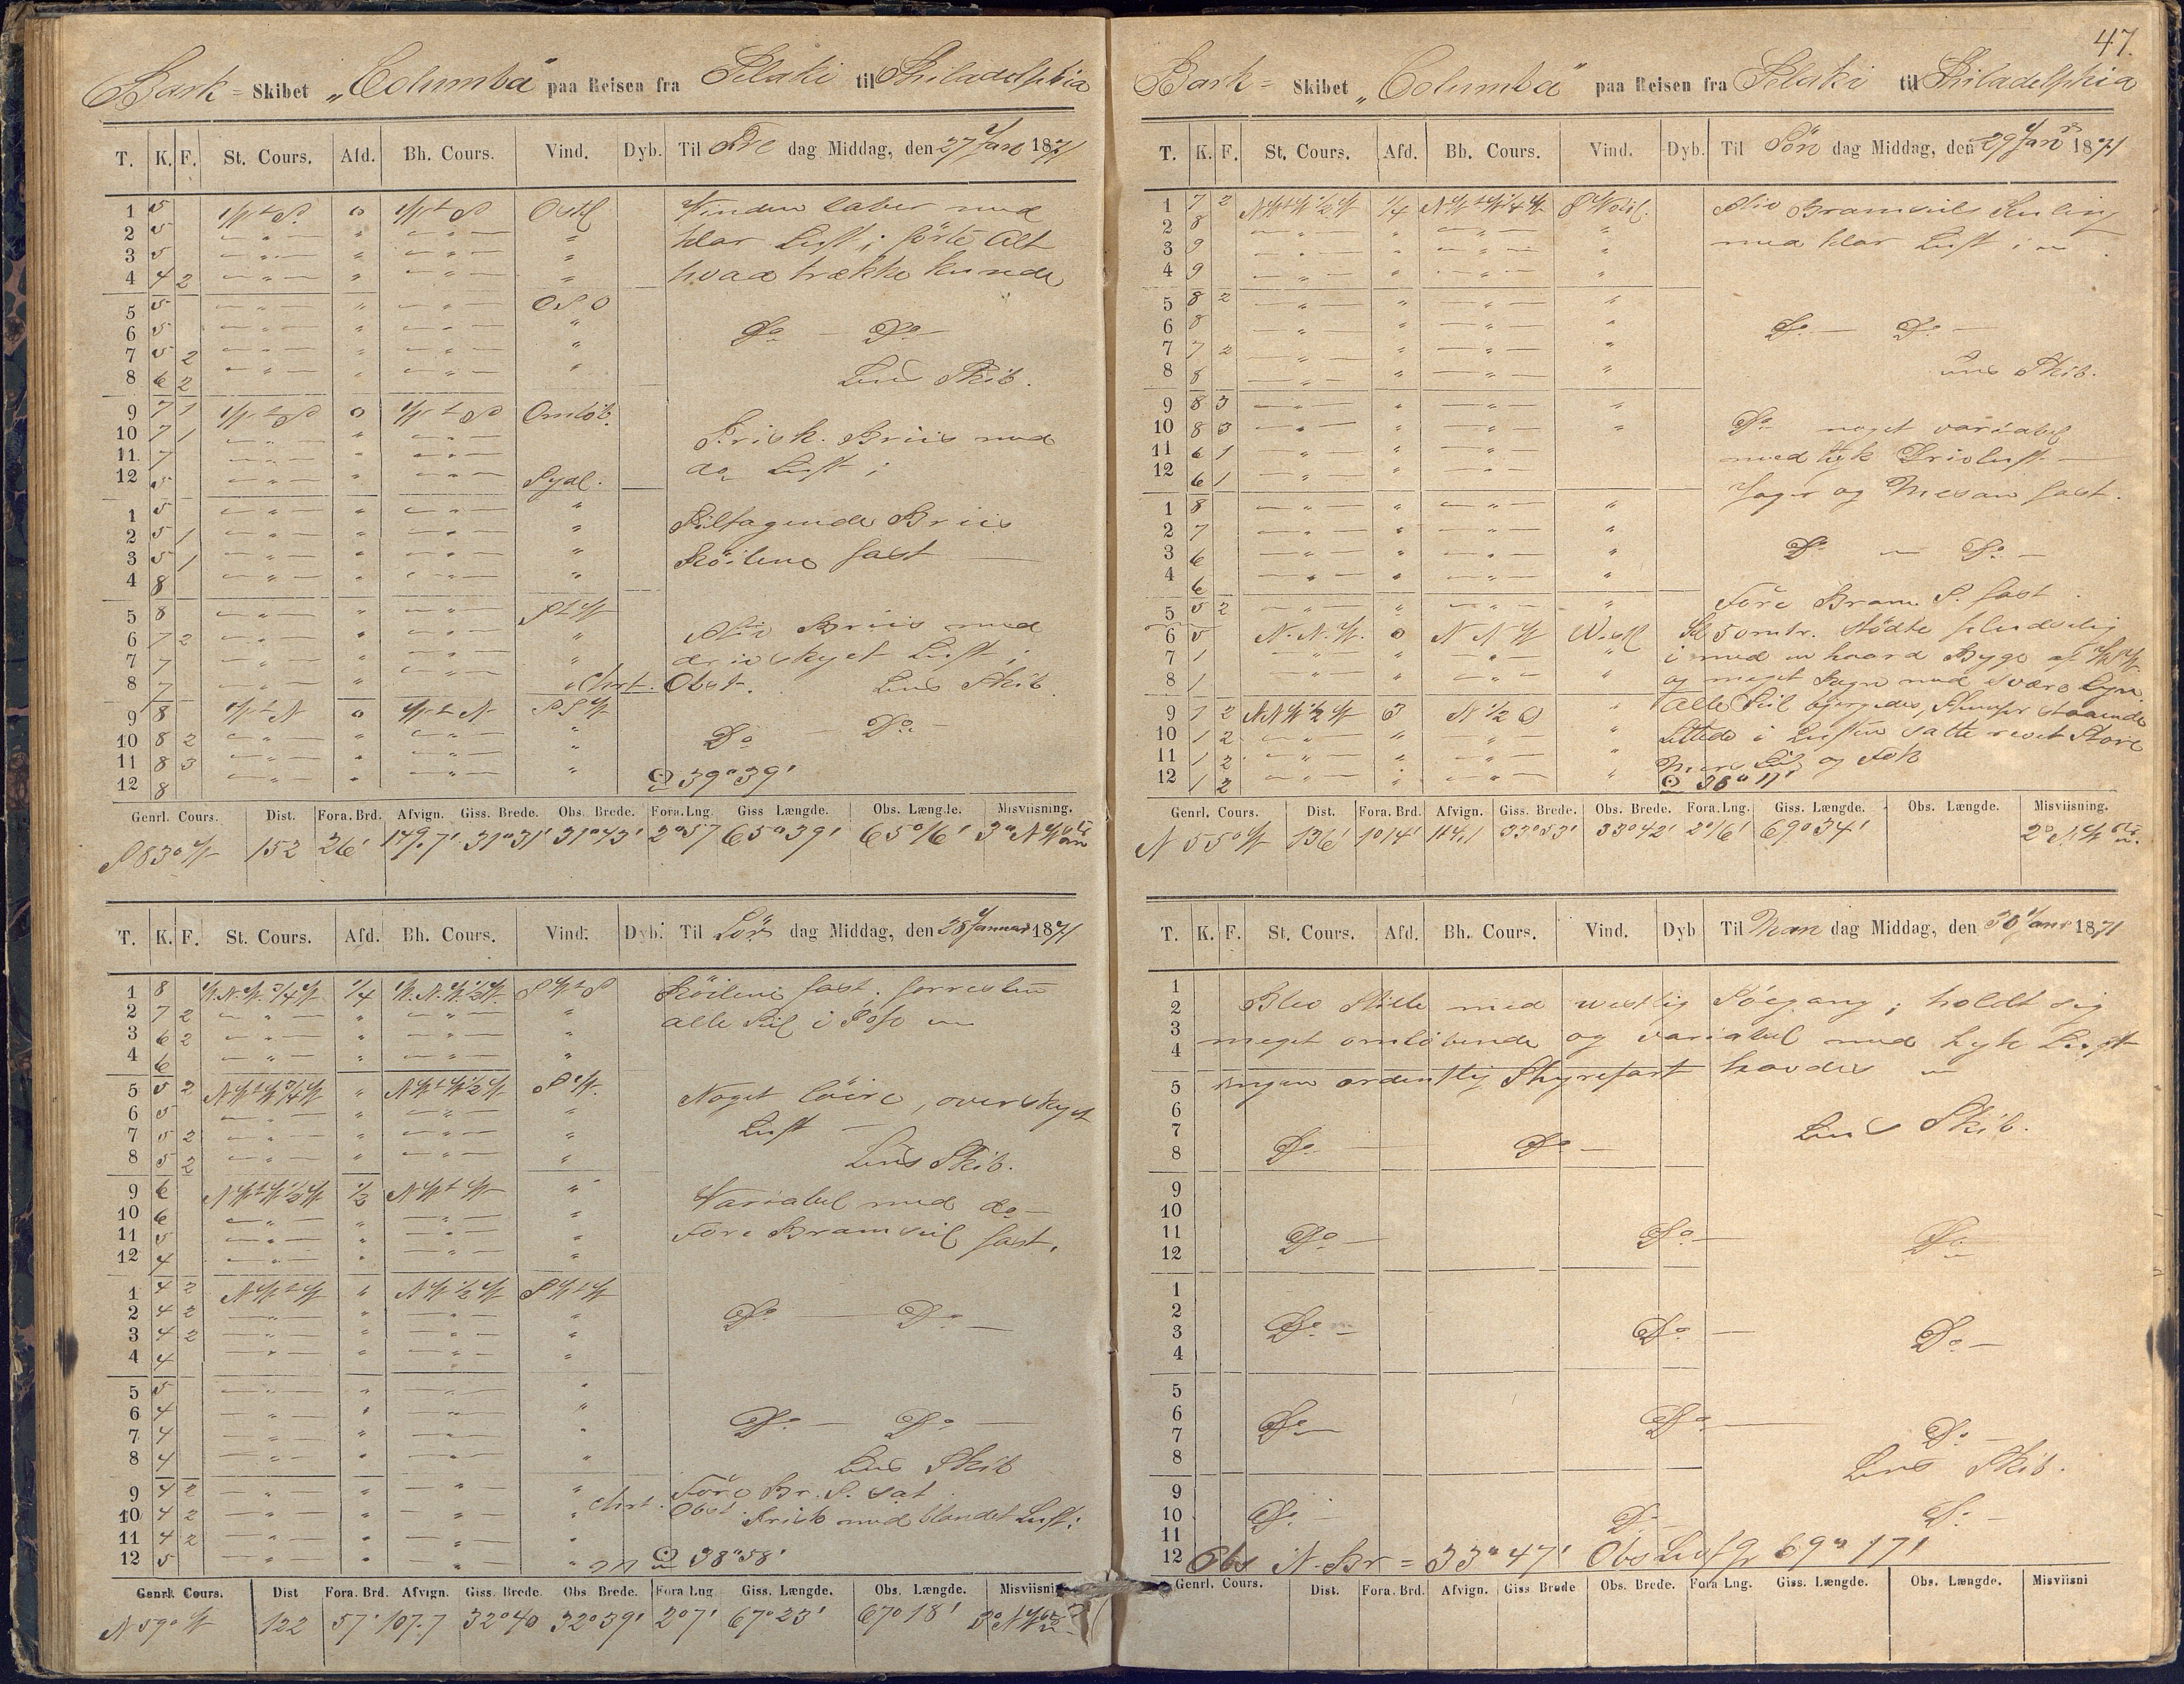 Bark - Skibet "Columba" paa Reisen fra Selaki til Philadelphia
T. K. F. St. Cours. Afd. Bh. Cours. Vind. Dyb. Til Fre dag Middag, den 27 Jan 1871
1 5 W t S 0 W t S Ostl Vinden laber med
2 5 klar Luft; förte Alt
3 5 hvad trække kunde
4 4 2
5 5 O S O
6 5 Do - Do -
7 5 2
8 6 2 Lens Skib.
9 7 1 W t S 0 W t S Omlöb.
10 7 1 Frisk Briis med
11 7 do Luft;
12 5 Sydl.
1 5 Tiltagende Briis
2 5 1
3 5 1 Röilene fast
4 8
5 8 S t W
6 7 2 Stiv Briis med
7 7 driv skyet Luft;
8 7 Chrt. Obst. Lens Skib
9 8 W t N 0 W t N S S W
10 8 2 Do - Do -
11 8 3
12 8 ☉ 39° 39'
Genrl. Cours. Dist. Fora. Brd. Afvign. Giss. Brede. Obs. Brede. Fora. Lng. Giss Længde. Obs. Længde. Misviisning.
S 83° W 152 26' 149.7' 31° 31' 31° 43' 2° 57 65° 39' 65° 16' 3° N W
T. K. F. St. Cours. Afd. Bh. Cours. Vind. Dyb. Til Lör dag Middag, den 28 Januar 1871
1 8 W. N. W. 3/4 W 1/4 W. N. W. 1/2 W. S W t S Röilene fast. forresten
2 7 2 alle Seil
3 6 2
4 6
5 5 2 N W t W 3/4 W N W t W 1/2 W S W.
6 5 Noget löire, overskyet
7 5 2 Luft -
8 5 2 Lens Skib.
9 6 N W t W 1/2 W 1/2 N W t W Variabel med do -
10 6
11 5 Fore Bramseil fast.
12 4
1 4 2 N W t W N W 1/2 W S W t W
2 4 2 Do - Do -
3 4 2
4 4
5 5
6 4 Do - Do -
7 4
8 4 Lens Skib
9 4 2 Före Br. S. sat
10 4 2 Chrt. Obst. Frisk med blandet Luft;
11 4 2
12 5 ☉ 38° 58'
Genrl. Cours. Dist Fora. Brd. Afvign. Giss. Brede. Obs Brede. Fora Lng Giss. Længde. Obs. Længde. Misviisni
N 59° W 122 57' 107.7 32° 40 32° 39' 2° 7' 67° 23' 67° 18' 3° N W
47.
Bark - Skibet "Columba" paa Reisen fra Selaki til Philadelphia
T. K. F. St. Cours. Afd. Bh. Cours. Vind. Dyb. Til Sön dag Middag, den 29 Jan 1871
1 7 2 N W t W 1/2 W 1/4 N W t W 1/4 W Stiv Bramseils Kuling
2 8 med klar Luft;
3 9
4 9
5 8 2
6 8 Do - Do -
7 7 2
8 8 Lens Skib.
9 8 3
10 8 3 Do noget variabel
11 6 1 med tyk Drivluft -
12 6 1 Jager og Mesan fast.
1 8
2 7
3 6 Do - Do -
4 6
5 5 2 Före Bram S. fast
6 5 N. N. W. 0 N N W Westl Kl 5 omtr. stödte pludselig
7 1 i med en haard Byge af
8 1 og meget Regn med svære Lyn
9 1 2 N N W 1/2 W 6 N 1/2 O Alle Seil bjergedes, Stumper staaende
10 1 2 Lettede i Luften satte revet Store
11 1 2 Mers Seil og Fok
12 1 2 ☉ 38° 11'
Genrl. Cours. Dist. Fora. Brd. Afvign. Giss. Brede. Obs. Brede. Fora. Lng. Giss. Længde. Obs. Længde. Misviisning.
N 55° W 136' 1° 14' 114.1 33° 53' 33° 42' 2° 16' 69° 34' 2° N W
T. K. F. St. Cours. Afd. Bh. Cours. Vind. Dyb Til Man dag Middag, den 30 Janr 1871
1
2 Blev Stille med westlig Söegang; holdt sig
3 meget omlöbende og variabel med tyk Luft
4
5 ingen ordentlig Styrefart havdes
6
7 Lens Skib.
8 Do - Do -
9
10
11 Do - Do - Do
12
1
2
3 Do - Do - Do -
4
5
6 Do - Do -
7 Do -
8 Lens Skib.
9
10 Do - Do - Do -
11
12 Obs N. Br = 33° 47' Obs 69° 17'
Genrl. Cours. Dist. Fora. Brd. Afvign. Giss Brede Obs. Brede. Fora Lng. Giss. Længde. Obs. Længde. Misviisni